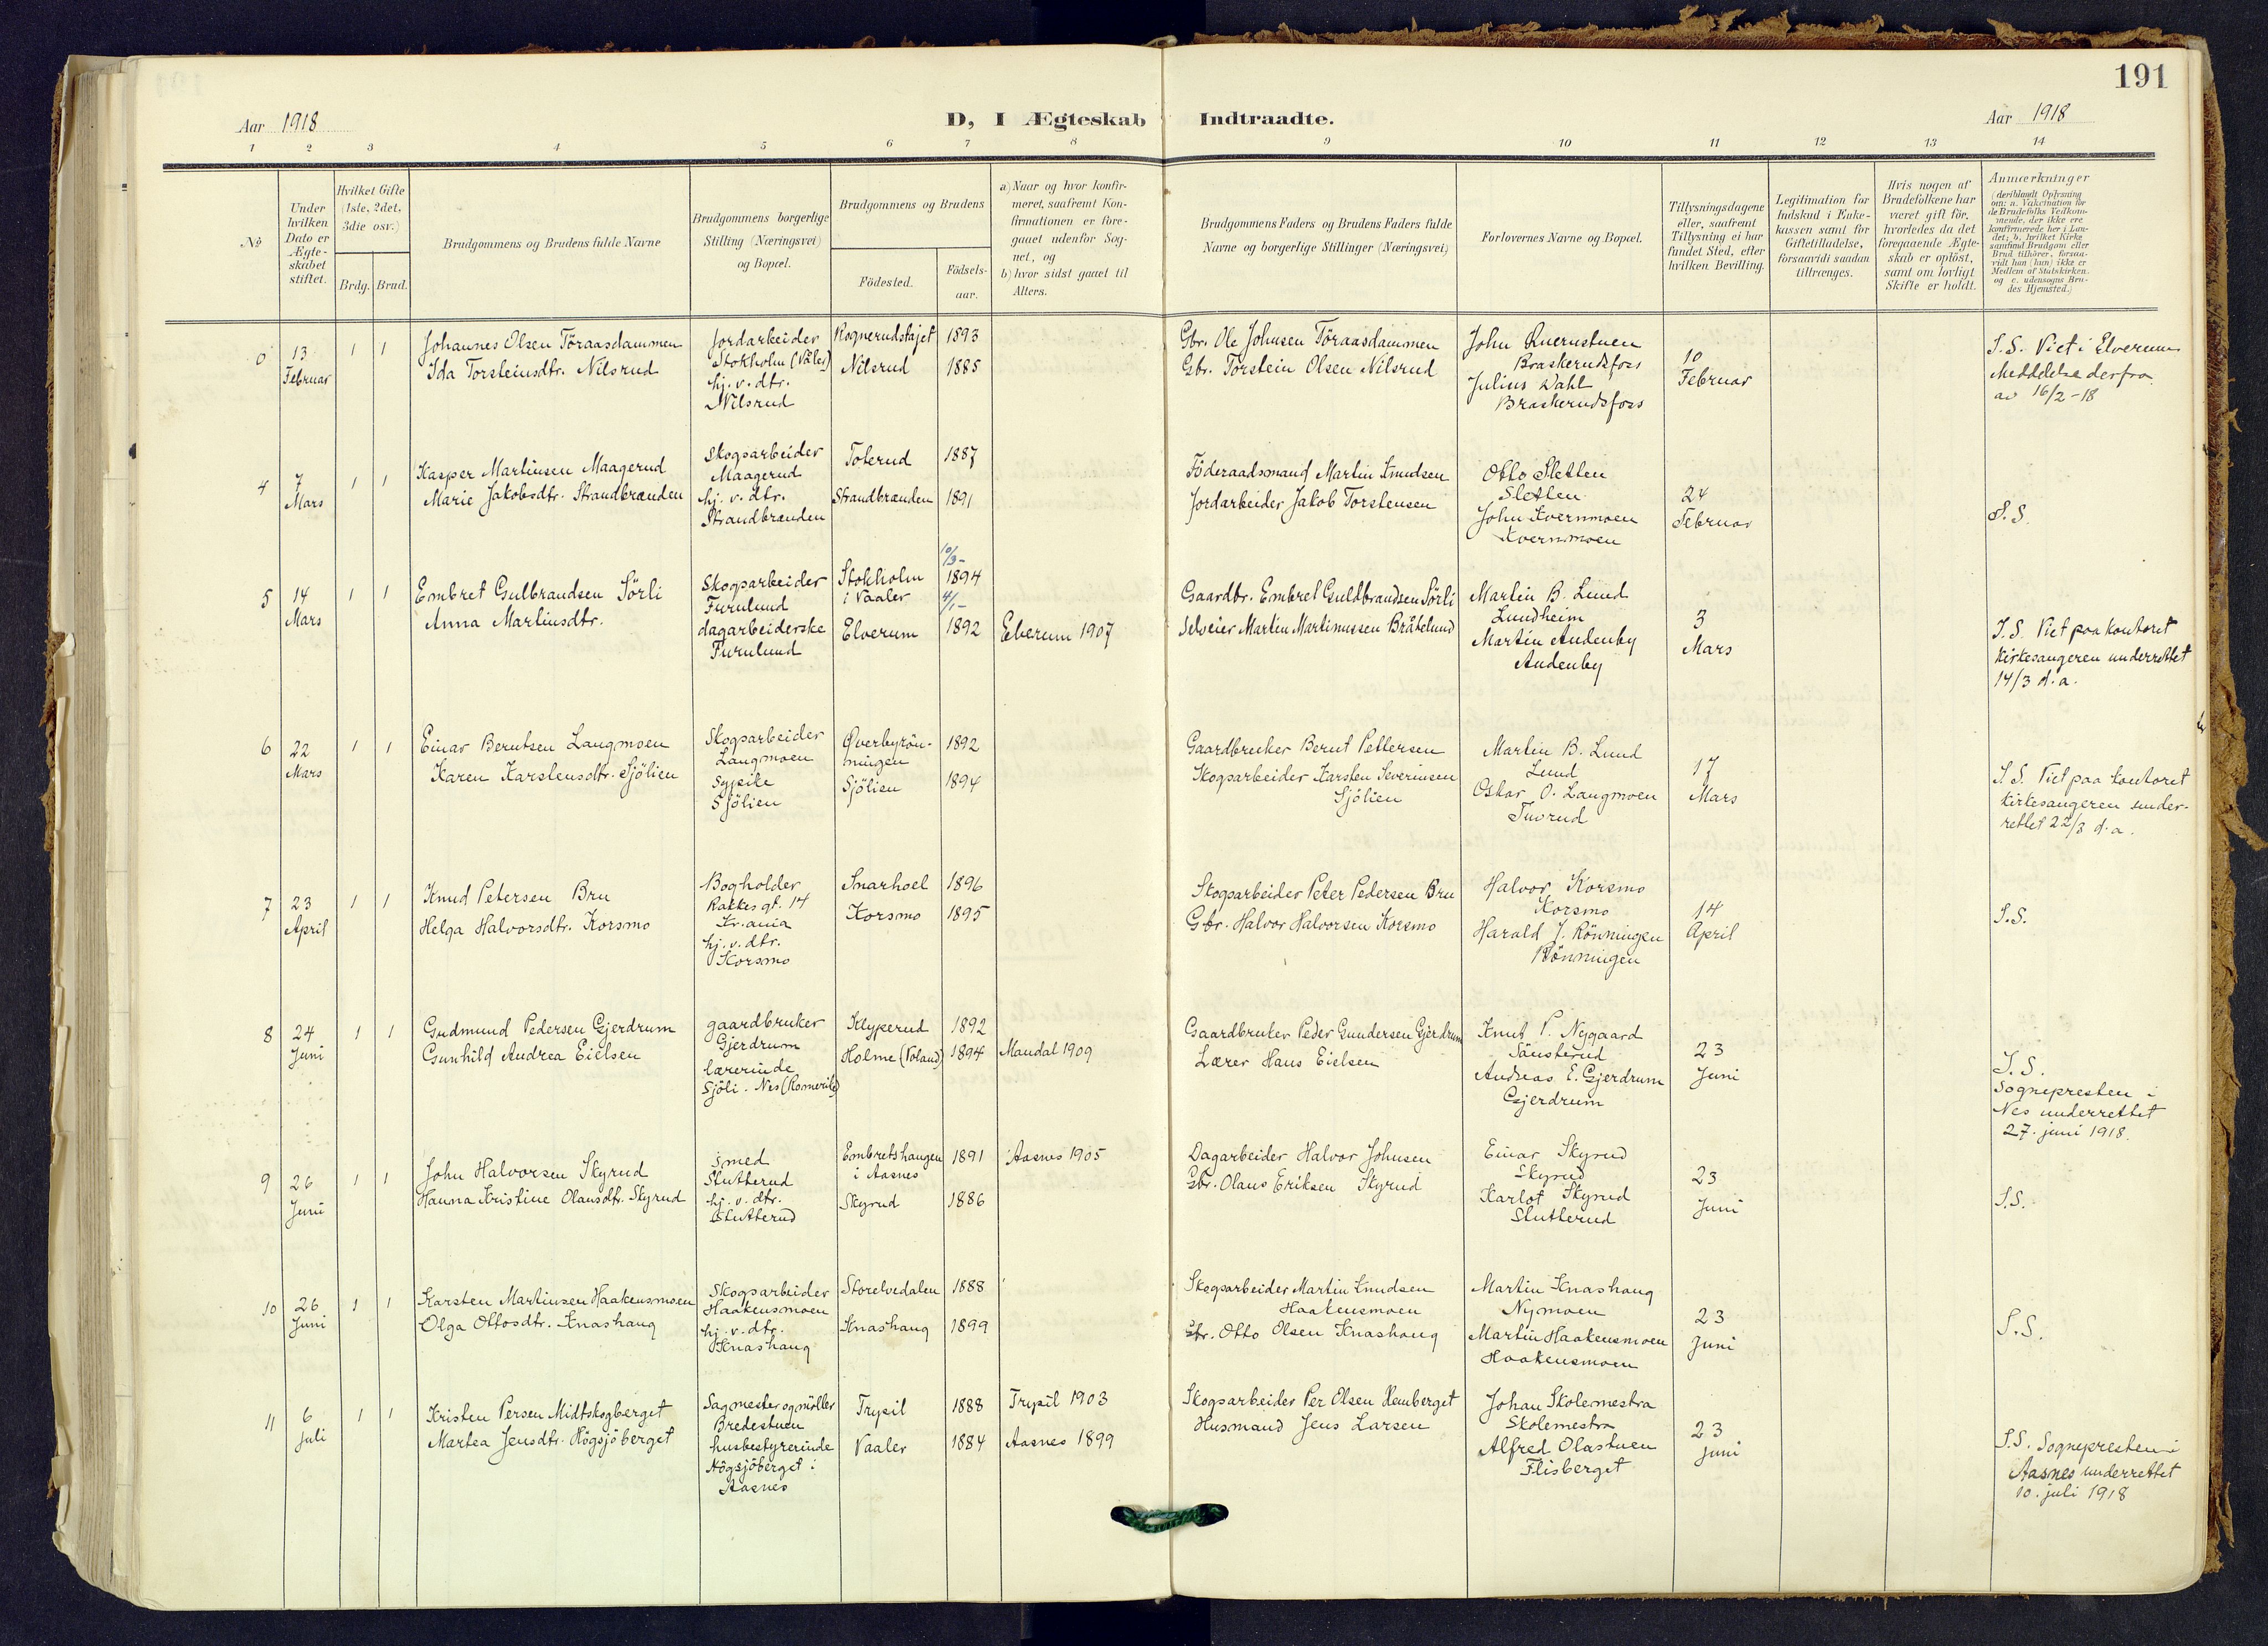 191
Aar 1918
D, I Ægteskab Indtraadte.
Aar 1918
1 2 3 4 5 6 7 8 9 10 11 12 13 14
No
Under hvilken Dato er Ægteskabet stiftet.
Hvilket Gifte (1ste, 2det, 3die osv.)
Brdg. Brud.
Brudgommens og Brudens fulde Navne
Brudgommens borgerlige Stilling (Næringsvei) og Bopæl.
Brudgommens og Brudens
Födested.
Födsels-aar.
a) Naar og hvor konfir-
meret, saafremt Kon-
firmationen er fore-
gaaet udenfor Sog-
net, og
b) hvor sidst gaaet til
Alters.
Brudgommens Faders og Brudens Faders fulde
Navne og borgerlige Stillinger (Næringsvei)
Forlovernes Navne og Bopæl.
Tillysningsdagene
eller, saafremt
Tillysning ei har
fundet Sted, efter
hvilken Bevilling.
Legitimation for
Indskud i Enke-
kassen samt for
Giftetilladelse,
forsaavidt saadan
tiltrænges.
Hvis nogen af
Brudefolkene har
været gift för,
hvorledes da det
foregaaende Ægte-
skab er oplöst,
samt om lovligt
Skifte er holdt.
Anmærkninger
(deriblandt Oplysning
om: a. Vakcination for
de Brudefolks Vedkom-
mende, der ikke ere
konfirmerede her i Lan-
det; b. hvilket Kirke
samfund Brudgom eller
Brud tilhörer, forsaa-
vidt han (hun) ikke er
Medlem af Statskirken.
og c. udensogns Bru-
des Hjemsted.)
13 Februar 1 1
Johannes Olsen Töraasdammen
Ida Torsteinsdtr. Nilsrud
Jordarbeider
Stokholm (Våler)
hj. v. dtr.
Nilsrud
Rognerudstajet 1893
Nilsrud 1885
Gbr. Ole Johnsen Töraasdammen
Gbr. Torstein Olsen Nilsrud
John
Braskerudsfoss
Julius Dahl
Braskerudsfoss
10 Februar
S.S. Viet i Elverum
Meddelelse derfra
av 16/2-18
4 7 Mars 1 1
Kasper Martinsen Maagerud
Marie Jakobsdtr. Strandbrænden
Skogsarbeider
Maagerud
hj. v. dtr.
Strandbrænden
Toterud 1887
Strandbrænden 1891
Föderaadsmand Martin Knudsen
Jordarbeider Jakob Torstensen
Otto Sletten
Sletten
John Kvernmoen
Kvernmoen
24 Februar
S.S.
5 14 Mars 1 1
Embret Gulbrandsen Sörli
Anna Martinsdtr.
Skogsarbeider
Furulund
dagarbeiderske
Furulund
Stokholm i Vaaler 10/3- 1894
Elverum 4/1- 1892 Elverum 1907
Gaardbr. Embret Guldbrandsen Sörli
Selveier Martin Martinussen Bråtelund
Martin B. Lund
Lundheim
Martin Audenby
Audenby
3 Mars
S.S. Viet paa kontoret
kirkesangeren underrettet
14/3 d.a.
6 22 Mars 1 1
Einar Berntsen Langmoen
Karen Karstensdtr. Sjölien
Skogsarbeider
Langmoen
Sypike
Sjölien
Øverbyrön-
ningen 1892
Sjölien 1894
Gaardbruker Bernt Pettersen
Skogsarbeider Karsten Severinsen
Sjölien
Martin B. Lund
Lund
Oskar O. Langmoen
Tuvrud
17 Mars
S.S. Viet paa kontoret
kirkesangeren under-
rettet 22/3 d.a.
7 23 April 1 1
Knud Petersen Bru
Helga Halvorsdtr. Korsmo
Bogholder
Rakkesgt. 14
Kr.ania
hj. v. dtr.
Korsmo
Snarhoel 1896
Korsmo 1895
Skogsarbeider Peter Pedersen Bru
Gbr. Halvor Halvorsen Korsmo
Halvor Korsmo
Korsmo
Harald J. Rönningen
Rönningen
14 April
S.S.
8 24 Juni 1 1
Gudmund Pedersen Gjerdrum
Gunhild Andrea Eielsen
gaardbruker
Gjerdrum
lærerinde
Sjöli. Nes (Romerike)
Klyperud 1892
Holme (Voland) 1894 Mandal 1909
Gaardbruker Peder Gundersen Gjerdrum
Lærer Hans Eielsen
Knut P. Nygaard
Sånsterud
Andreas E. Gjerdrum
Gjerdrum
23 Juni
S.S.
Sognepresten i
Nes underrettet
27. juni 1918.
9 26 Juni 1 1
John Halvorsen Skyrud
Hanna Kristine Olausdtr. Skyrud
Smed
Slutterud
hj. v. dtr.
Slutterud
Embretshaugen
i Aasnes 1891 Aasnes 1905
Skyrud 1886
Dagarbeider Halvor Johnsen
Gbr. Olaus Eriksen Skyrud
Einar Skyrud
Skyrud
Karlot Skyrud
Slutterud
23 Juni
S.S.
10 26 Juni 1 1
Karsten Martinsen Haakensmoen
Olga Ottosdtr. Knashaug
Skogsarbeider
Haakensmoen
hj. v. dtr.
Knashaug
Storelvedalen 1888
Knashaug 1899
Skogsarbeider Martin Knudsen
Haakensmoen
Gbr. Otto Olsen Knashaug
Martin Knashaug
Nymoen
Martin Haakensmoen
Haakensmoen
23 Juni
S.S.
11 6 Juli 1 1
Kristen Persen Midtskogberget
Martea Jensdtr. Högsjöberget
Sagmester og möller
Bredestuen
husbestyrerinde
Högsjöberget i
Aasnes
Trysil 1888 Trysil 1903
Vaaler 1884 Aasnes 1899
Skogsarbeider Per Olsen Hemberget
Husmand Jens Larsen
Johan Skolemestra
Skolemestra
Alfred Olastuen
Flisberget
23 juni
S.S. Sognepresten i
Aasnes underrettet
10. juli 1918